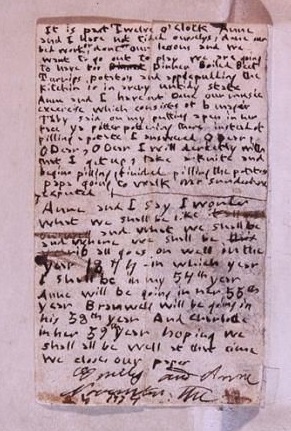 It is past Twelve o'clock Anne
and I have not tided ourselvs, done our
bed work, done our lessons and we
want to go out to play We are going
to have for Dinner Boiled Beef
Turnips, potato's and applepudding the
kitchin is in avery untidy state
Anne and I have not Done our music
exercise which consists of b majer
Taby said on my putting apen in her
face Ya pitter pottering there insteadof
pilling a potate I answered O Dear
O Dear, O Dear I will derictly with
that I get up, take a knife and
begin pilling finished pilling the potatos
papa going to walk Mr sunderland
expected
Anne and I say I wonder
what we shall be like
and what we shall be
and where we shall be
if all goes on well in the
year 1874 - in which year
I shall be in my 54th year
Anne will be going in her 55th
year Branwell will be going in
his 58th year And Charlotte
in her 59th year hoping we
shall all be well at that time
we close our paper
Emily and Anne
November the